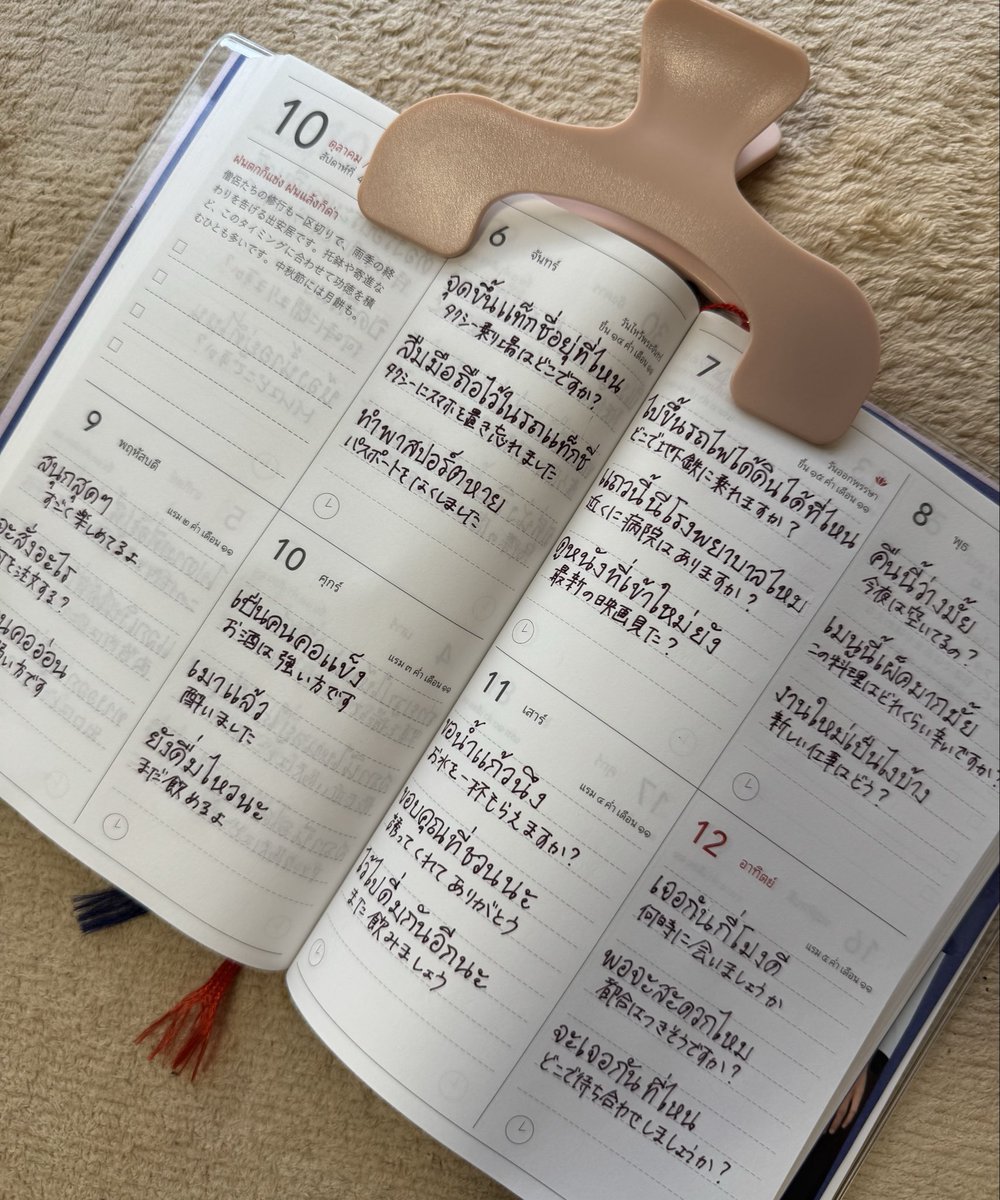 10
ตุลาคม /
สัปดาห์ที่ 4
ฝนตกก็แช่ง ฝนแล้งก็ด่า
僧侶たちの修行も一区切りで、雨季の終
わりを告げる出安居です。托鉢や寄進な
ど、このタイミングに合わせて功徳を積
むひとも多いです。中秋節には月餅も。
6
จันทร์
วันไหว้พระจันทร์
ขึ้น ๑๔ ค่ำ เดือน ๑๑
จุดขึ้นแท็กซี่อยู่ที่ไหน
タクシー乗り場はどこですか?
ลืมมือถือไว้ในรถแท็กซี่
タクシーにスマホを置き忘れました
ทำพาสปอร์ตหาย
パスポートをなくしました
7
วันออกพรรษา
ขึ้น ๑๕ ค่ำ เดือน ๑๑
ไปขึ้นรถไฟใต้ดินได้ที่ไหน
どこで地下鉄に乗れますか?
แถวนี้มีโรงพยาบาลไหม
近くに病院はありますか?
ดูหนังที่เข้าใหม่ยัง
最新の映画見た?
8
พุธ
คืนนี้ว่างมั้ย
今夜は空いてるの?
เมนูนี้เผ็ดมากมั้ย
この料理はどれくらい辛いですか?
งานใหม่เป็นไงบ้าง
新しい仕事はどう?
9
พฤหัสบดี
แรม ๒ ค่ำ เดือน ๑๑
สนุกสุดๆ
すごく楽しめてるよ
จะสั่งอะไร
を注文する?
คออ่อน
弱い方です
10
ศุกร์
แรม ๓ ค่ำ เดือน ๑๑
เป็นคนคอแข็ง
お酒は強い方です
เมาแล้ว
酔いました
ยังดื่มไหวนะ
まだ飲めるよ
11
เสาร์
แรม ๔ ค่ำ เดือน ๑๑
ขอน้ำแก้วนึง
お水を一杯もらえますか?
ขอบคุณที่ชวนนะ
誘ってくれてありがとう
ไว้ไปดื่มกันอีกนะ
また飲みましょう
12
อาทิตย์
แรม ๕ ค่ำ เดือน ๑๑
เจอกันกี่โมงดี
何時に会いましょうか
พอจะสะดวกไหม
都合はつきそうですか?
จะเจอกันที่ไหน
どこで待ち合わせしましょうか?